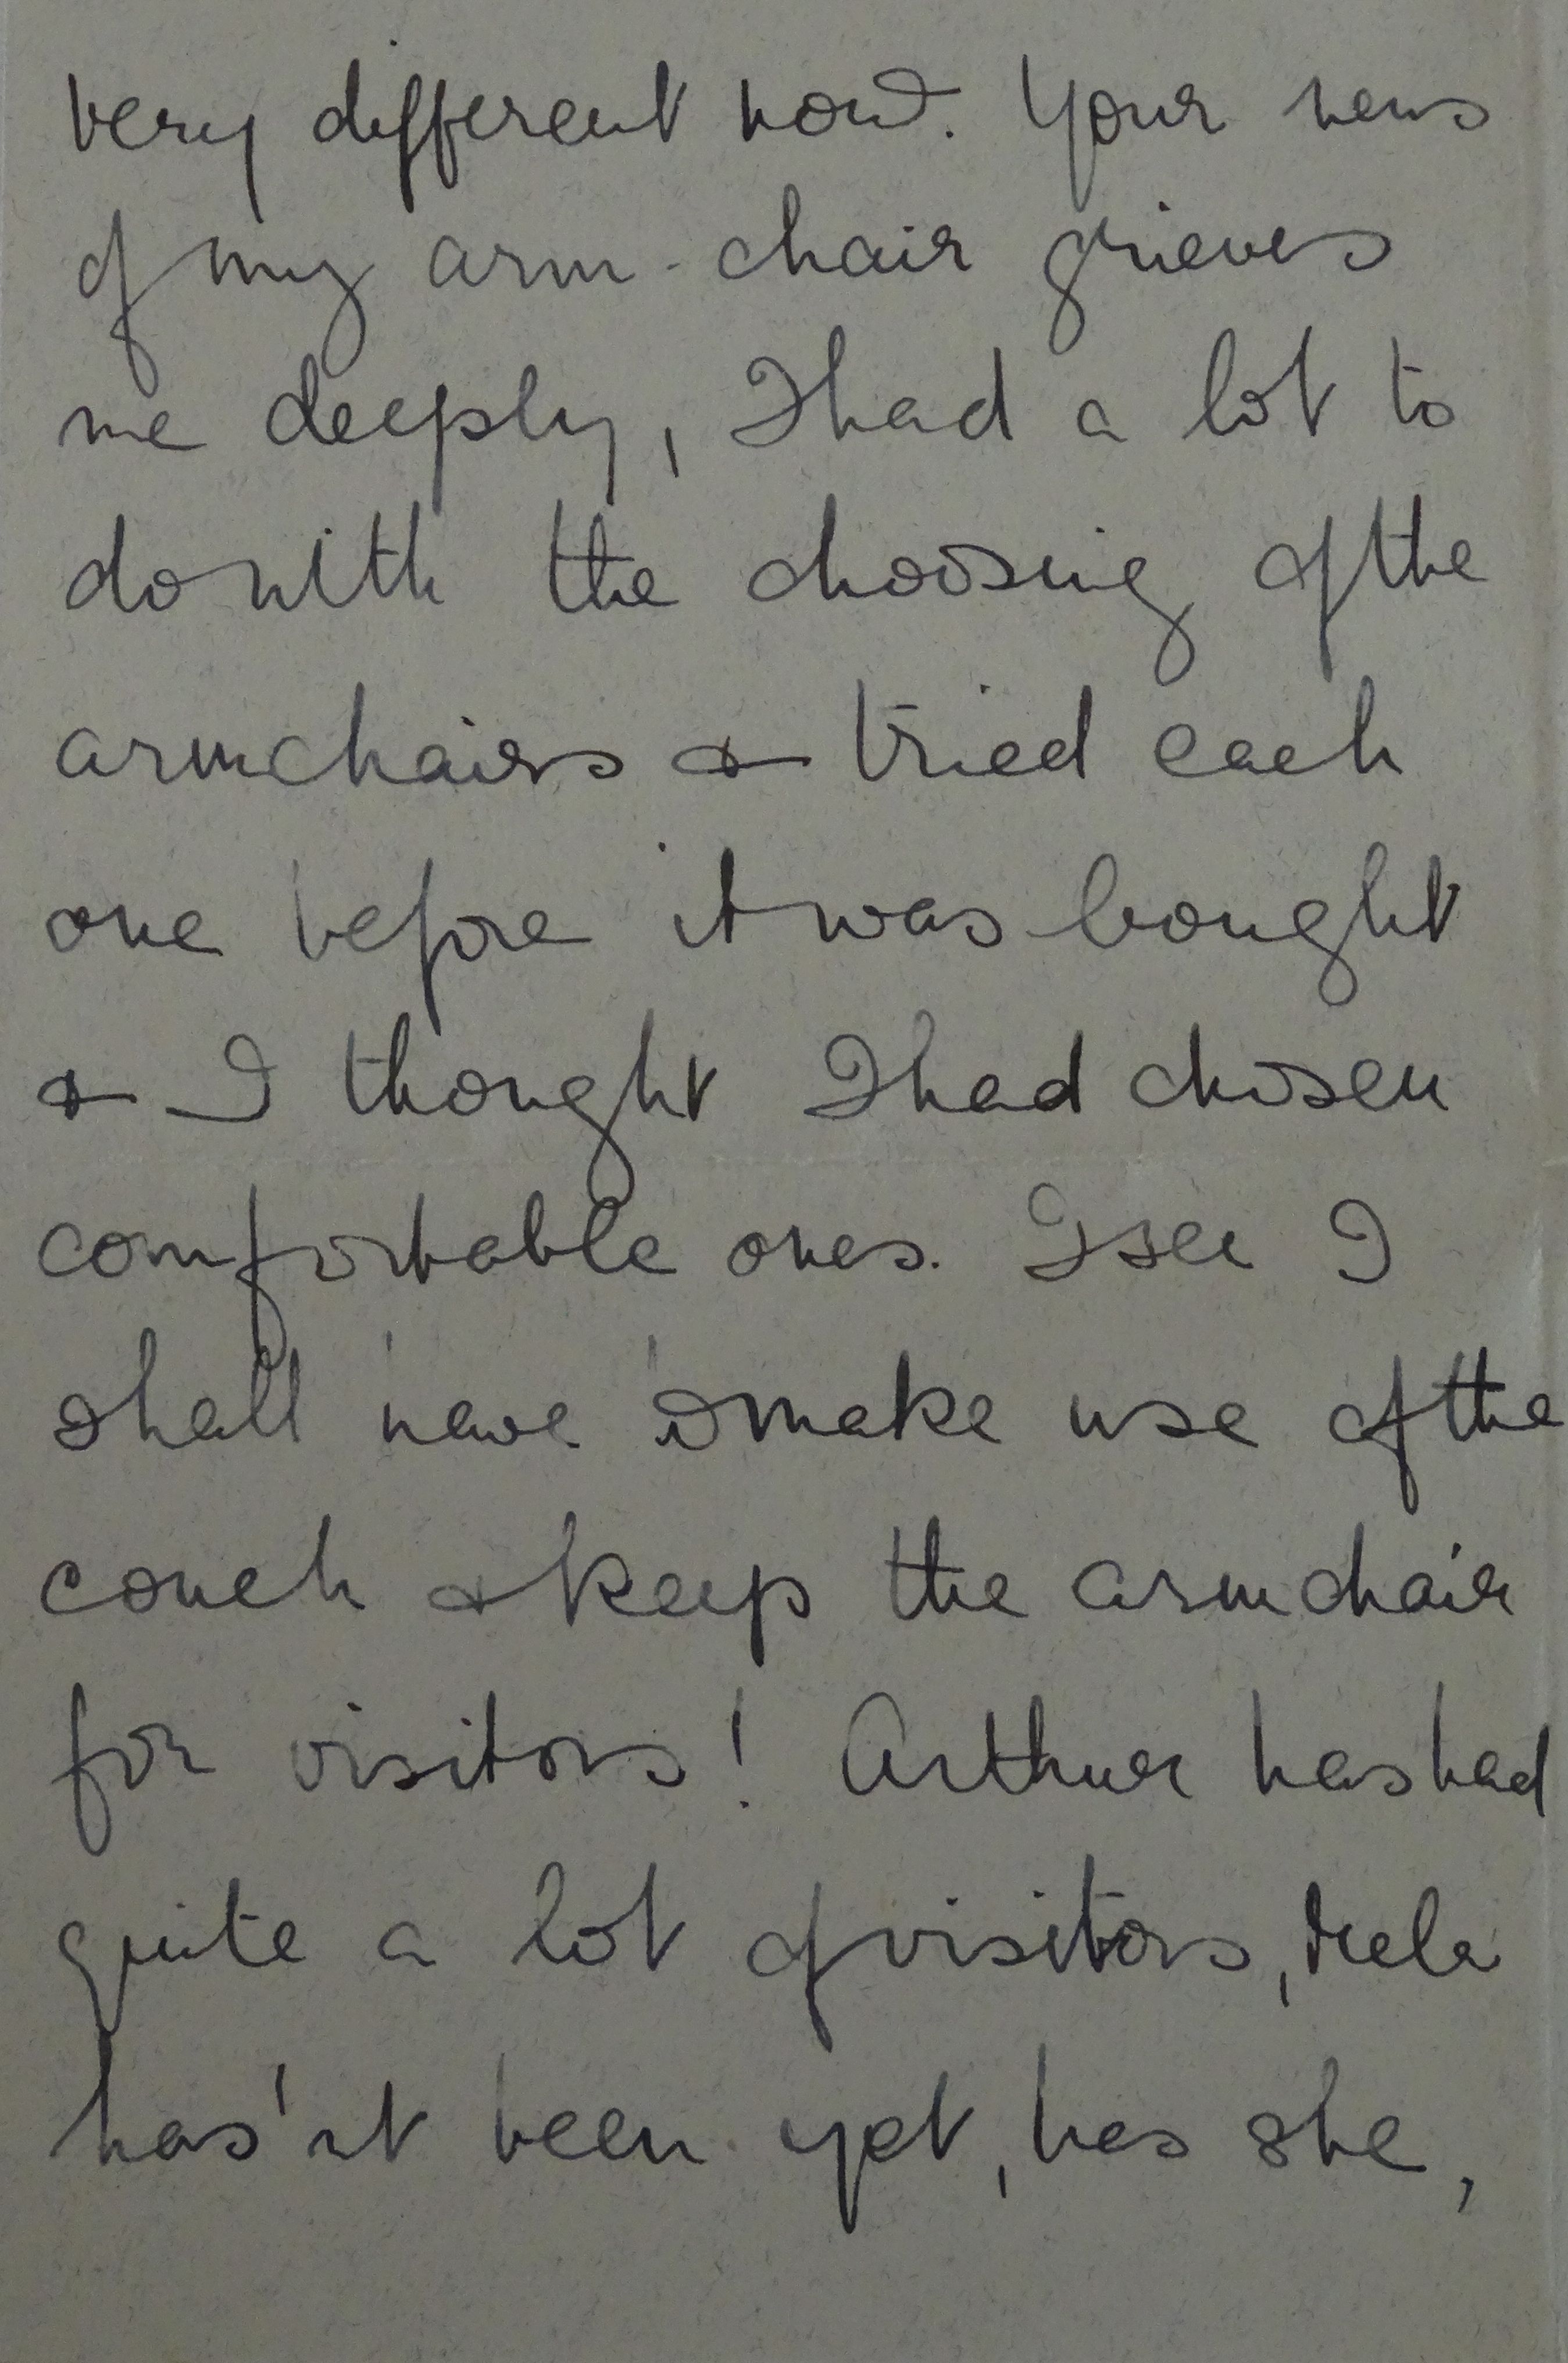 very different now. Your news
of my arm-chair grieves
me deeply, I had a lot to
do with the choosing of the
armchairs & tried each
one before it was bought
& I thought I had chosen
comfortable ones. I see I
shall have to make use of the
couch & keep the armchair
for visitors! Arthur has had
quite a lot of visitors,
has'nt been yet, has she,